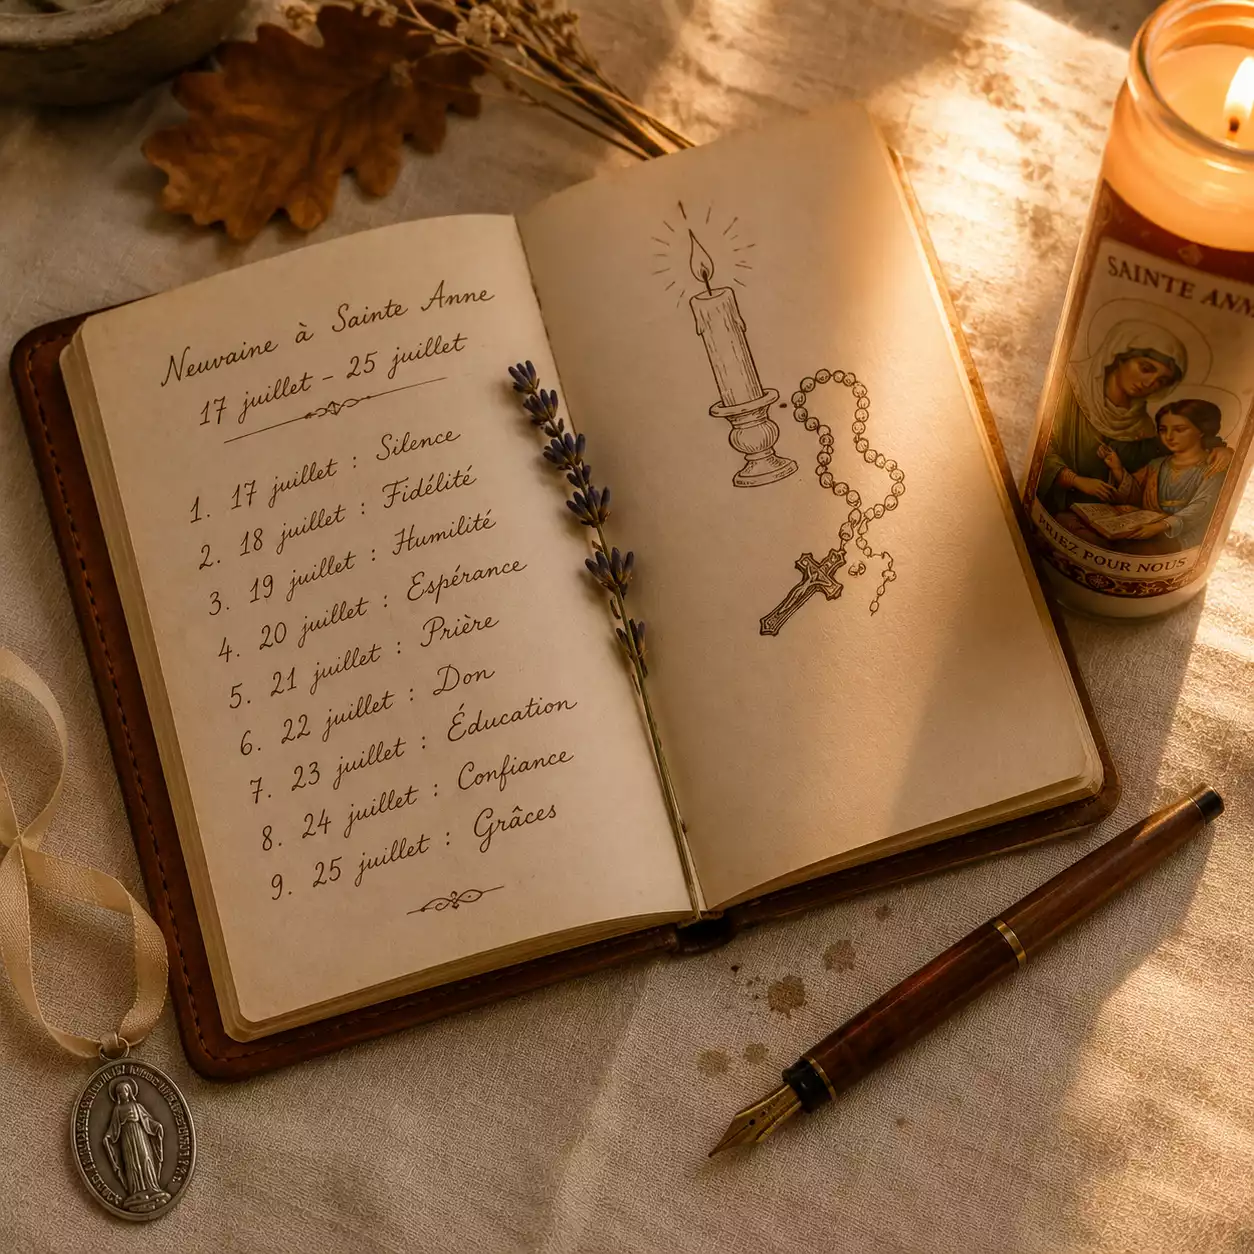 Neuvaine à Sainte Anne
17 juillet – 25 juillet
1. 17 juillet : Silence
2. 18 juillet : Fidélité
3. 19 juillet : Humilité
4. 20 juillet : Espérance
5. 21 juillet : Prière
6. 22 juillet : Don
7. 23 juillet : Éducation
8. 24 juillet : Confiance
9. 25 juillet : Grâces
SAINTE ANNE
PRIEZ POUR NOUS